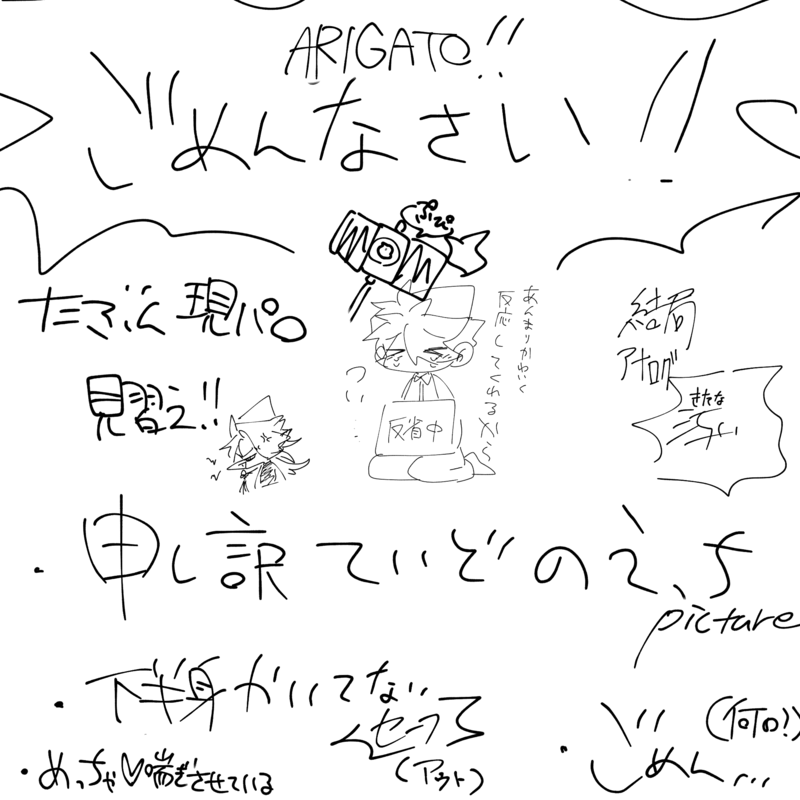 ARIGATO!!
ごめんなさい!!
ぷぴ
たぶん現パロ
見習え!!
あんまりかわいく
反応してくれるから
つい…
反省中
結局
アナログ
きたな
・申し訳ていどのえっち
picture
・下半身かいてない
セーフ
(アウト)
・めっちゃ♡喘ぎさせている
・ごめん…
(何の!)